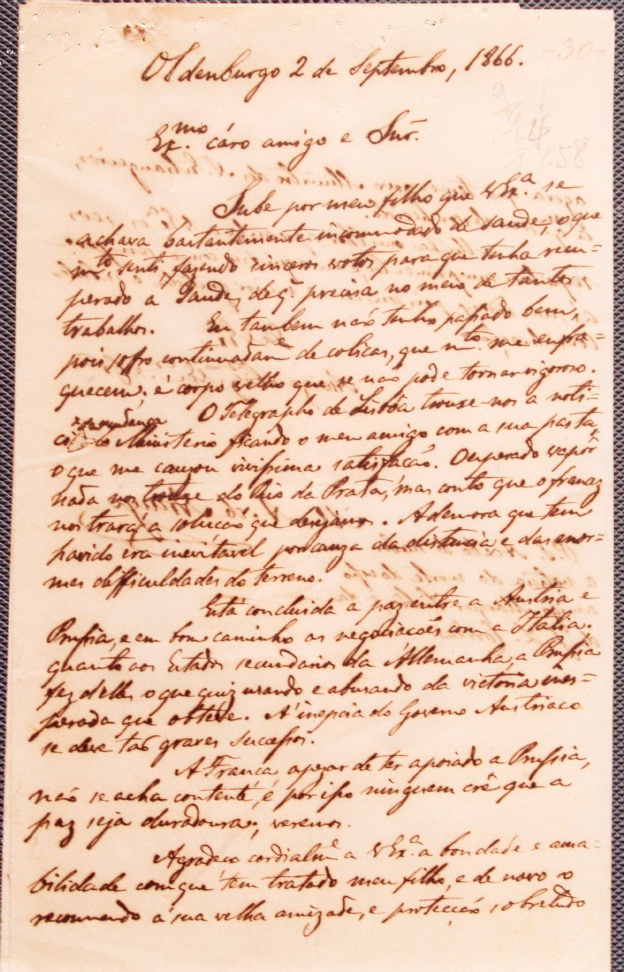 -30-
Oldenburgo 2 de Septembro, 1866.
Ex.mo cáro amigo e Snr.
158
Sube por meu filho que VEx.a se
achava bastantemente incommodado de saude, o que
m.to senti, fazendo sinceros votos para que tenha recu-
perado a Saude, de q. precisa no meio de tantos
trabalhos. Eu tambem não tenho passado bem,
pois soffro continuadam.e de colicas, que m.to me enfra-
quecem. é corpo velho que se não pode tornar vigoroso.
O Telegrapho de Lisbôa trouxe-nos a noti-
cia da mudança
do Ministerio ficando o meu amigo com a sua pasta,
o que me causou vivissima satisfacão. O esperado vapôr
nada nos trouxe do Rio da Prata, mas conto que o francez
nos trará a solucão que desejamos. A demora que tem
havido era inevitavel por cauza da distancia e das enor-
mes difficuldades do terreno.
Está concluida a paz entre a Austria e
Prussia, e em bom caminho as negociacões com a Italia.
quanto aos Estados secundarios da Allemanha, a Prussia
fez delles o que quiz usando e abusando da victoria ines-
perada que obteve. A' inepcia do Governo Austriaco
se deve tão graves sucessos.
A Franca, apezar de ter apoiado a Prussia,
não se acha contente, e por isso ninguem crê que a
paz seja duradoura, veremos.
Agradeco cordialm.e a VEx.a a bondade e ama-
bilidade com que tem tratado meu filho, e de novo o
recommendo á sua velha amizade, e protecção sobretudo